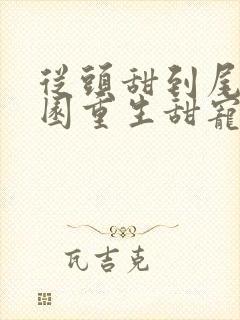 從頭甜到尾
園重生甜寵
瓦吉克